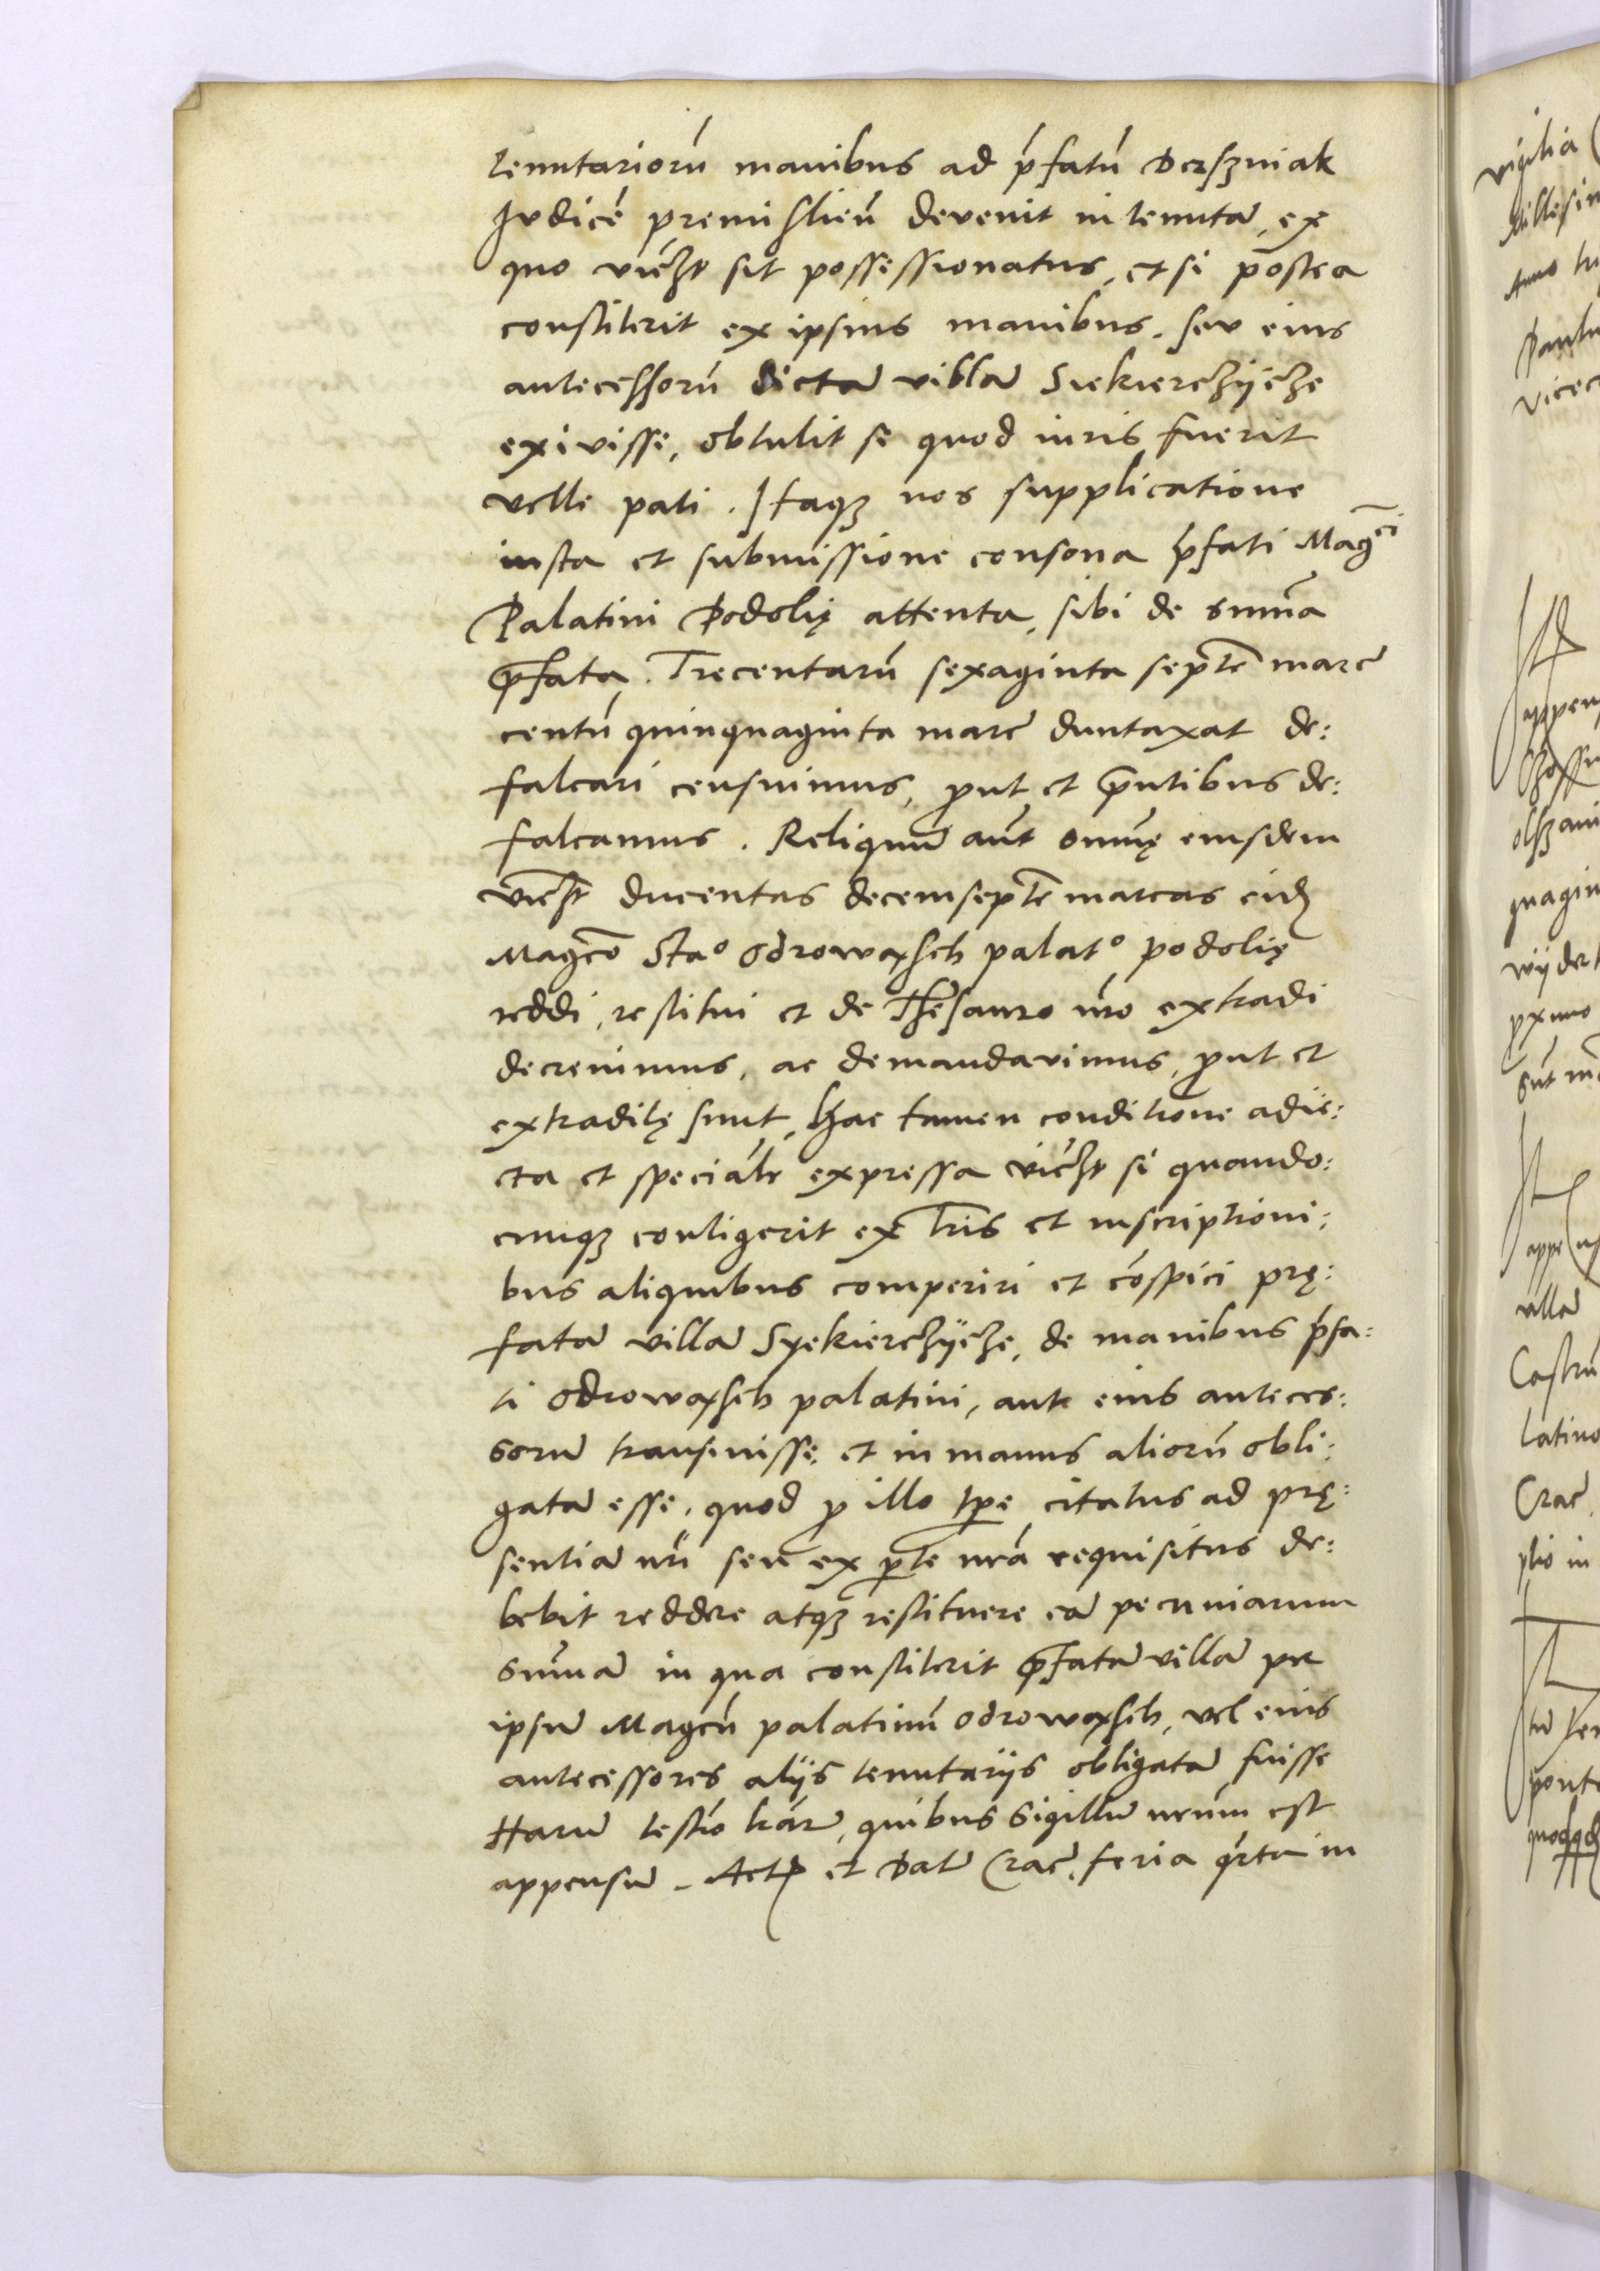 tenutariorū manibus ad p̄fatū Derszniak
Judicē premisliēn devenit in tenutā, ex
quo vicȝt sit possessionatus, et si postea
constiterit ex ipsius manibus, seu eius
antecessorū dictā villā Siekierczÿcze
exivisse, obtulit se quod iuris fuerit
velle pati. Itaqȝ nos supplicatione
iusta et submissione consona p̄fati Magci
Palatini Podolię attenta, sibi de sum̄a
p̄fata Trecentarū sexaginta septē marc
centū quinquaginta marc duntaxat de:
falcari censuimus, prout et p̄ntibus de:
falcamus. Reliquū aūt om̄ę eiusdem
vicȝt ducentas decemseptē marcas eidē
Magco Stao Odrowasch palato podolię
reddi, restitui et de Thesauro nr̄o extradi
decrevimus, ac demandavimus, prout et
extraditę sunt, hac tamen conditione adie:
cta et speciāl̄r expressa vicȝt si quando:
cunqȝ contigerit ex lr̄is et inscriptioni:
bus aliquibus comperiri et cōspici prę:
fatā villā Syekierczÿcze, de manibus p̄fa:
ti Odrowasch palatini, aut eius anteces:
sorū transivisse, et in manus aliorū obli:
gatā esse, quod pro illo tpe citatus ad prę:
sentiā nr̄i seu ex pte nrā requisitus de:
bebit reddere atqȝ restituere eā pecuniarum
sum̄ā in qua constiterit p̄fatā villā per
ipsū Magcū palatinū Odrowasch, vel eius
antecessores alijs tenutarijs obligatā fuisse
Harū testīo lrār, quibus Sigillū nrūm est
appensū. Actū et Datū Crac̄. feria qr̄ta in
vigilia
Anno
appen
quagin
villā
Castrū
latino
Crac̄